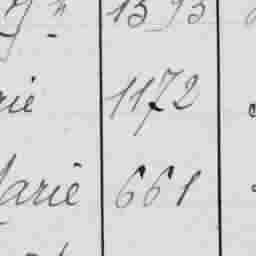 1393
rie 1172
Marie 661